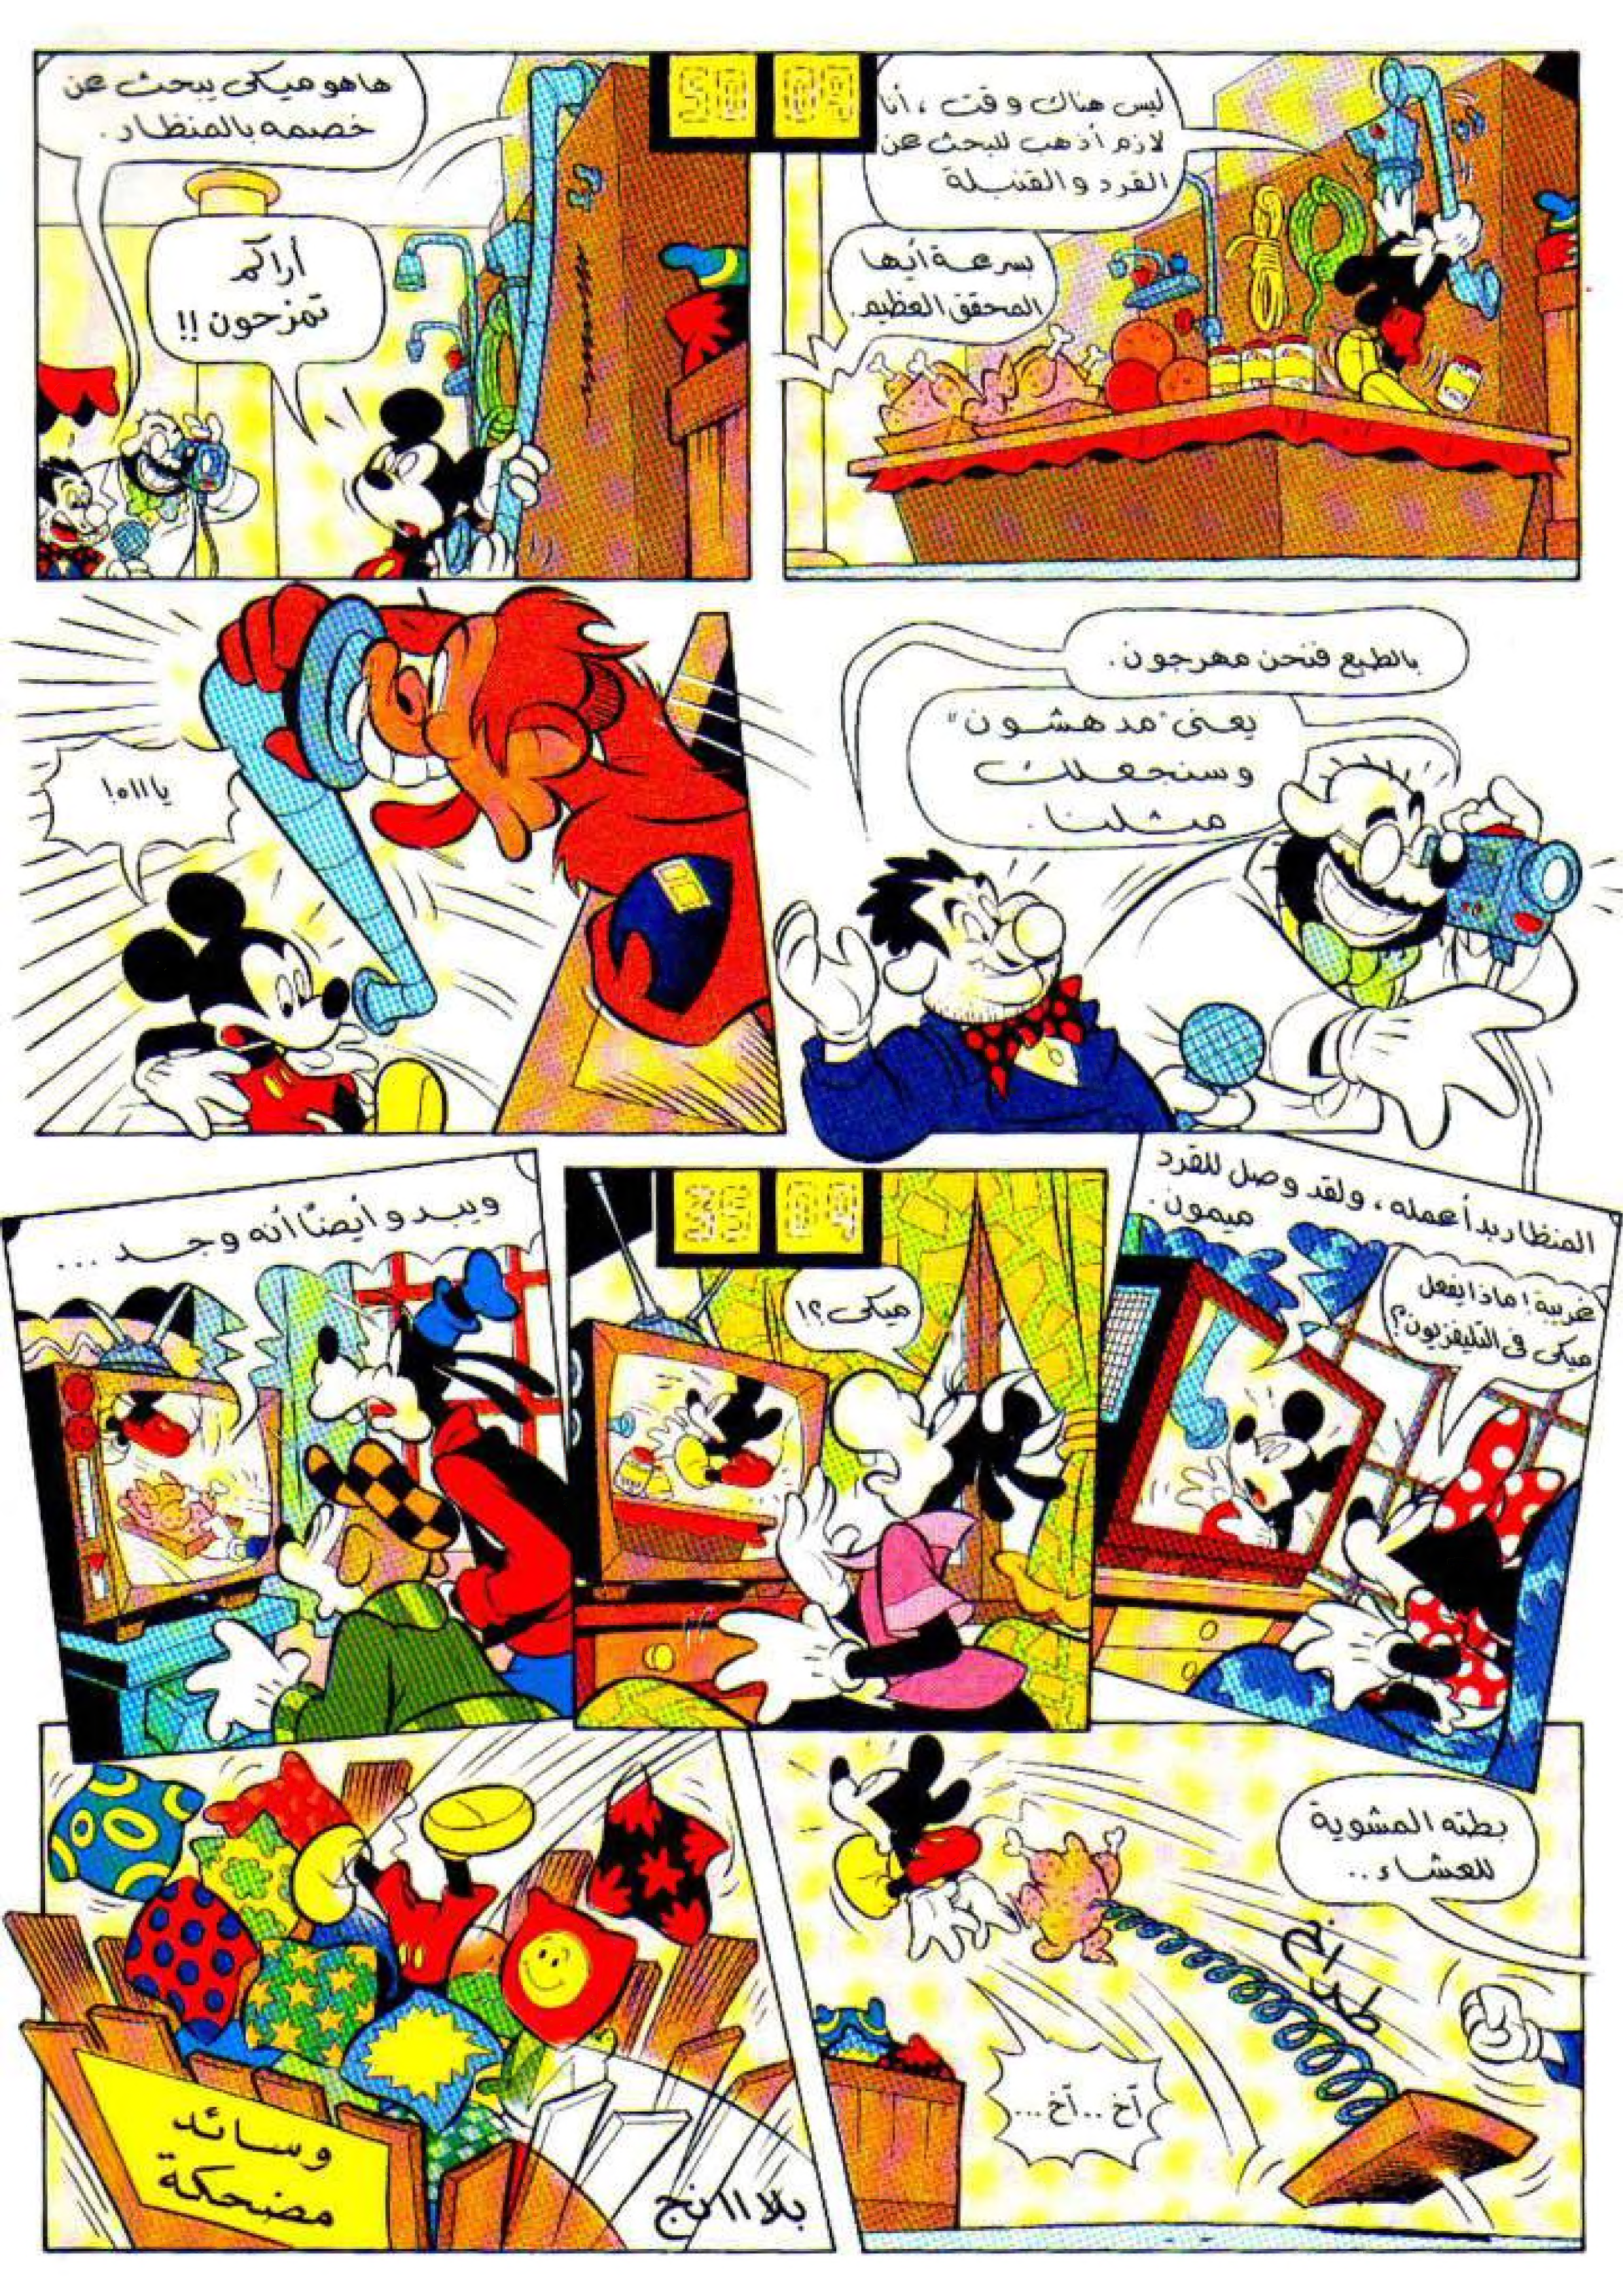 ليس هناك وقت، أنا
لازم أذهب للبحث عن
القرد والقنبلة
بسرعة أيها
المحقق العظيم.
هاهو ميكى يبحث عن
خصمه بالمنظار.
أراكم
تمزحون!!
بالطبع فنحن مهرجون.
يعنى "مدهشون"
وسنجعلك
مثلنا.
يااااه!
المنظار بدأ عمله، ولقد وصل للقرد
ميمون.
غريبة! ماذا يفعل
ميكى فى التليفزيون؟
ميكى؟!
ويبدو أيضًا أنه وجد ...
بطته المشوية
للعشاء..
طدانج
آخ..آخ...
وسائد
مضحكة
بلااانج